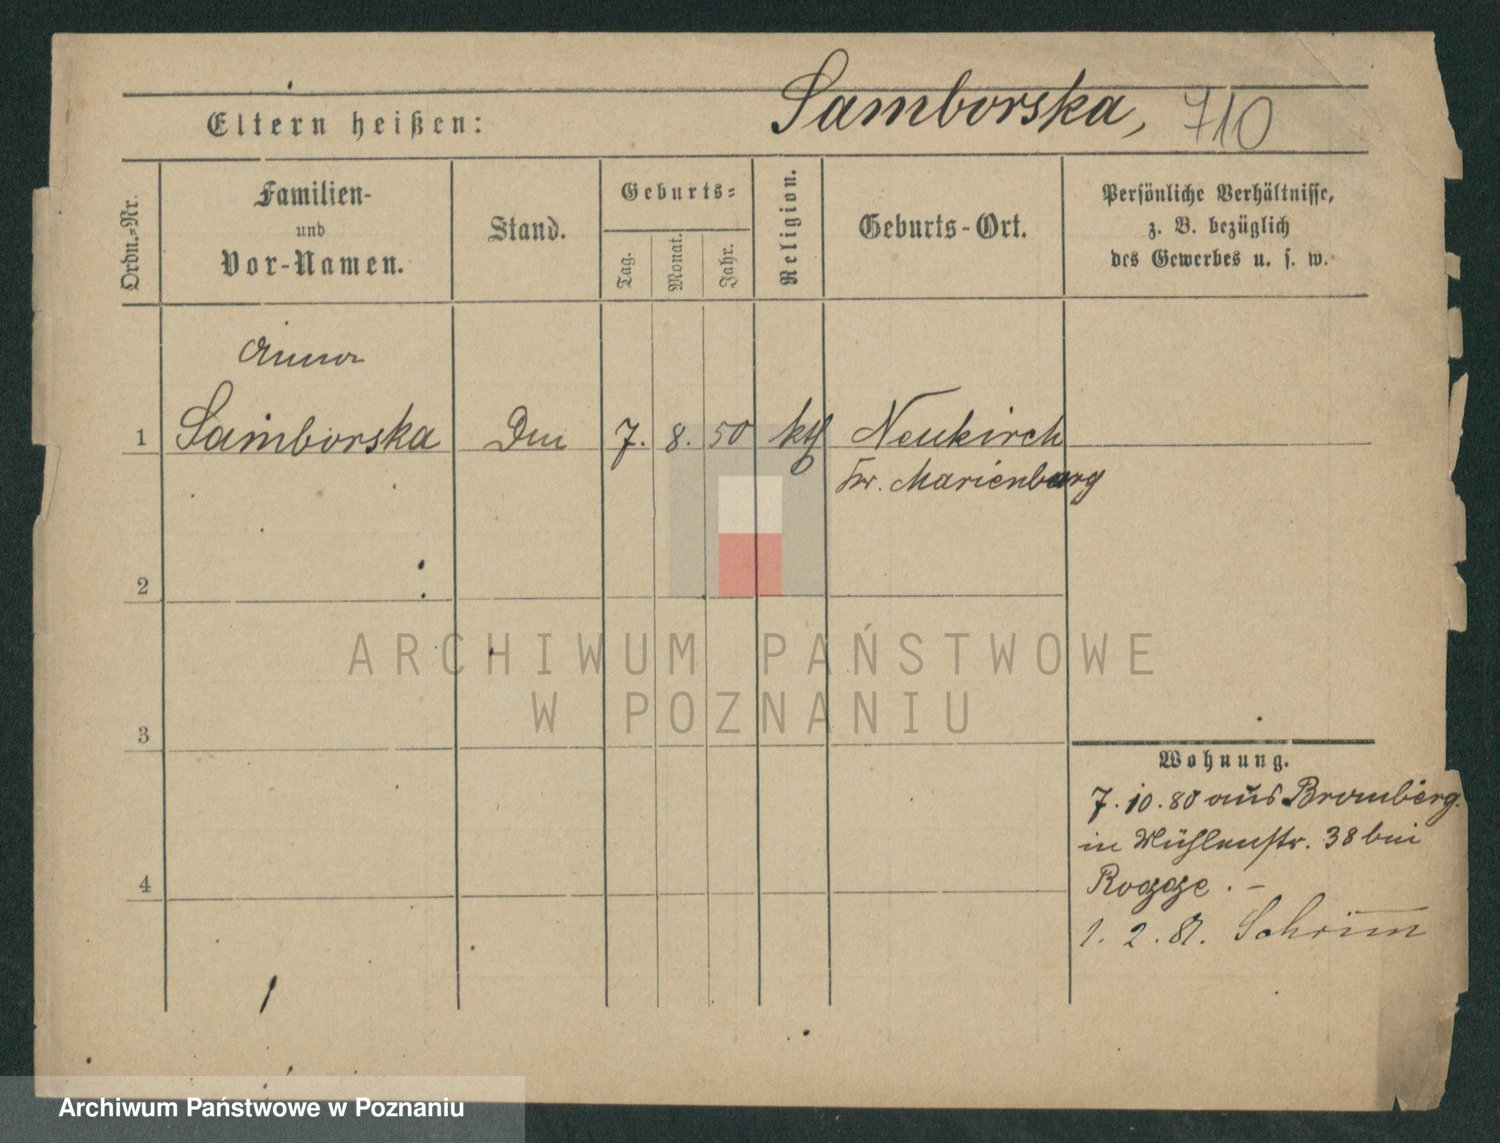 Samborska, 710
Eltern heißen:
Ordn.-Nr.
Familien-
und
Vor-Namen.
Stand.
Geburts-
Tag.
Monat.
Jahr.
Religion.
Geburts-Ort.
Persönliche Verhältnisse,
z. B. bezüglich
des Gewerbes u. s. w.
Anna
1 Samborska 7. 8. 50 kth Neukirch
Kr. Marienburg
2
3
4
ARCHIWUM PAŃSTWOWE
W POZNANIU
Wohnung.
7. 10. 80 aus Bromberg.
in Mühlenstr. 38 bei
Rogge. –
1. 2. 81. Schrimm
Archiwum Państwowe w Poznaniu